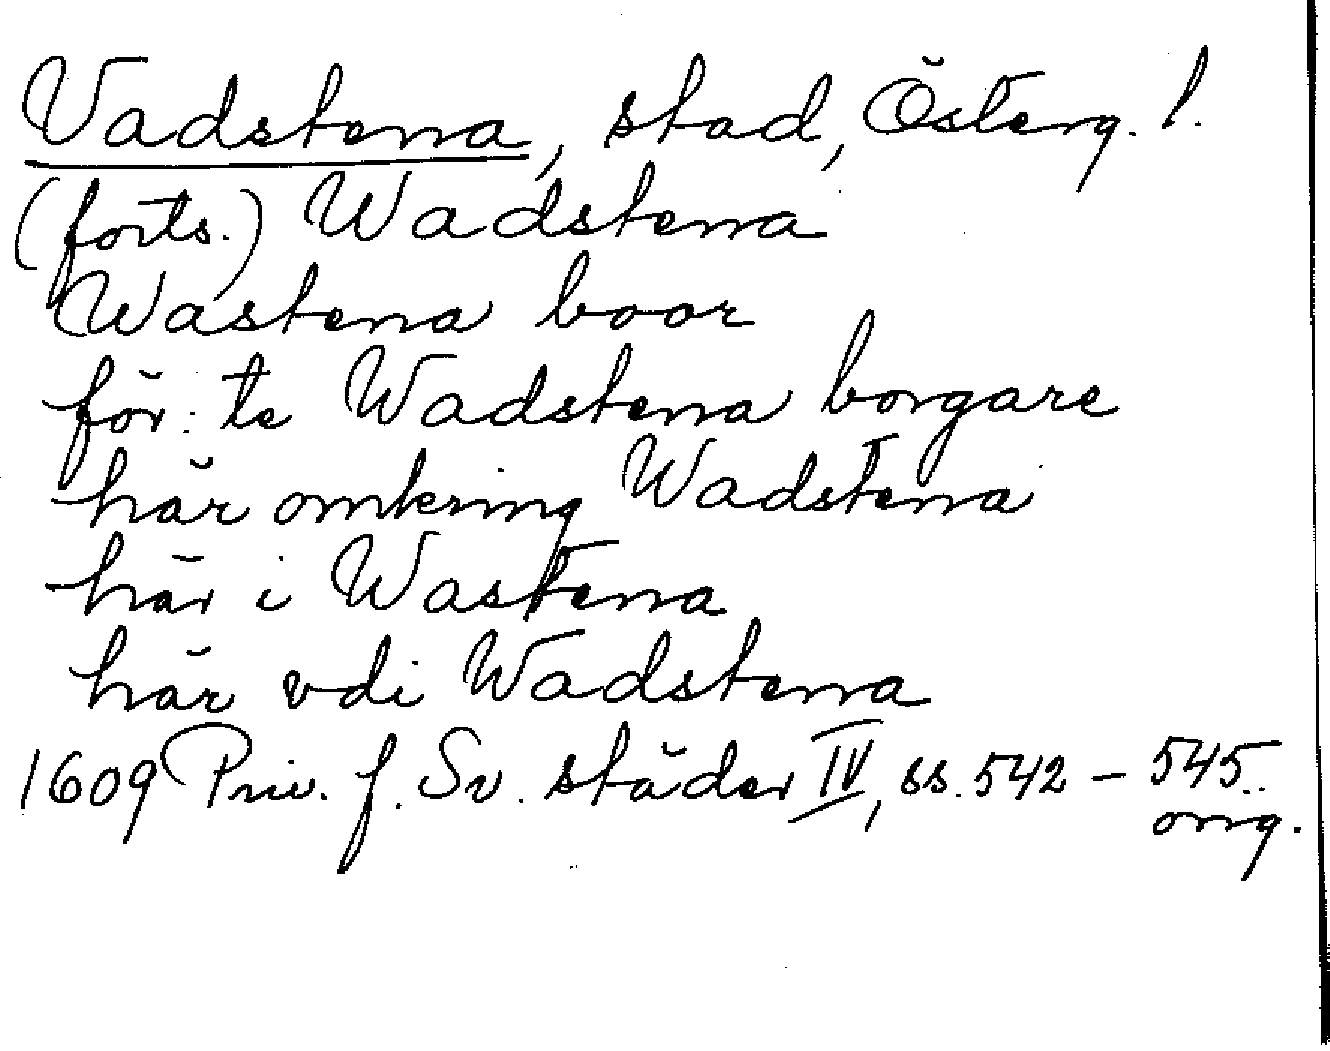 Vadstena, stad, Österg. l.
(forts.) Wadstena
Wastena boor
för: te Wadstena borgare
här omkring Wadstena
här i Wastena
här vdi Wadstena
1609 Priv. f. Sv. städer IV, ss. 542 - 545.
orig.